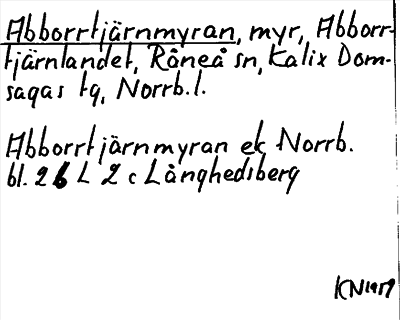 Abborrtjärnmyran, myr, Abborr-
tjärnlandet, Råneå sn, Kalix Dom-
sagas tg, Norrb.l.
Abborrtjärnmyran ek Norrb.
bl. 26 L 2 c Långhedsberg